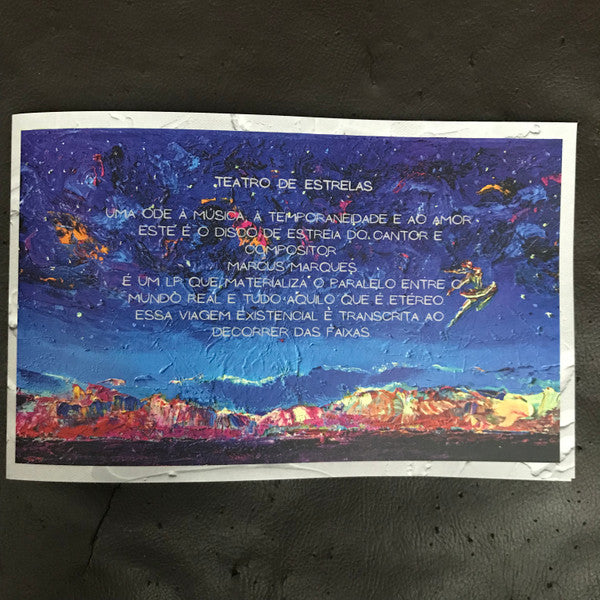 TEATRO DE ESTRELAS
UMA ODE À MÚSICA, À TEMPORANEIDADE E AO AMOR
ESTE É O DISCO DE ESTREIA DO CANTOR E
COMPOSITOR
MARCUS MARQUES
É UM LP QUE MATERIALIZA O PARALELO ENTRE O
MUNDO REAL E TUDO AQUILO QUE É ETÉREO
ESSA VIAGEM EXISTENCIAL É TRANSCRITA AO
DECORRER DAS FAIXAS